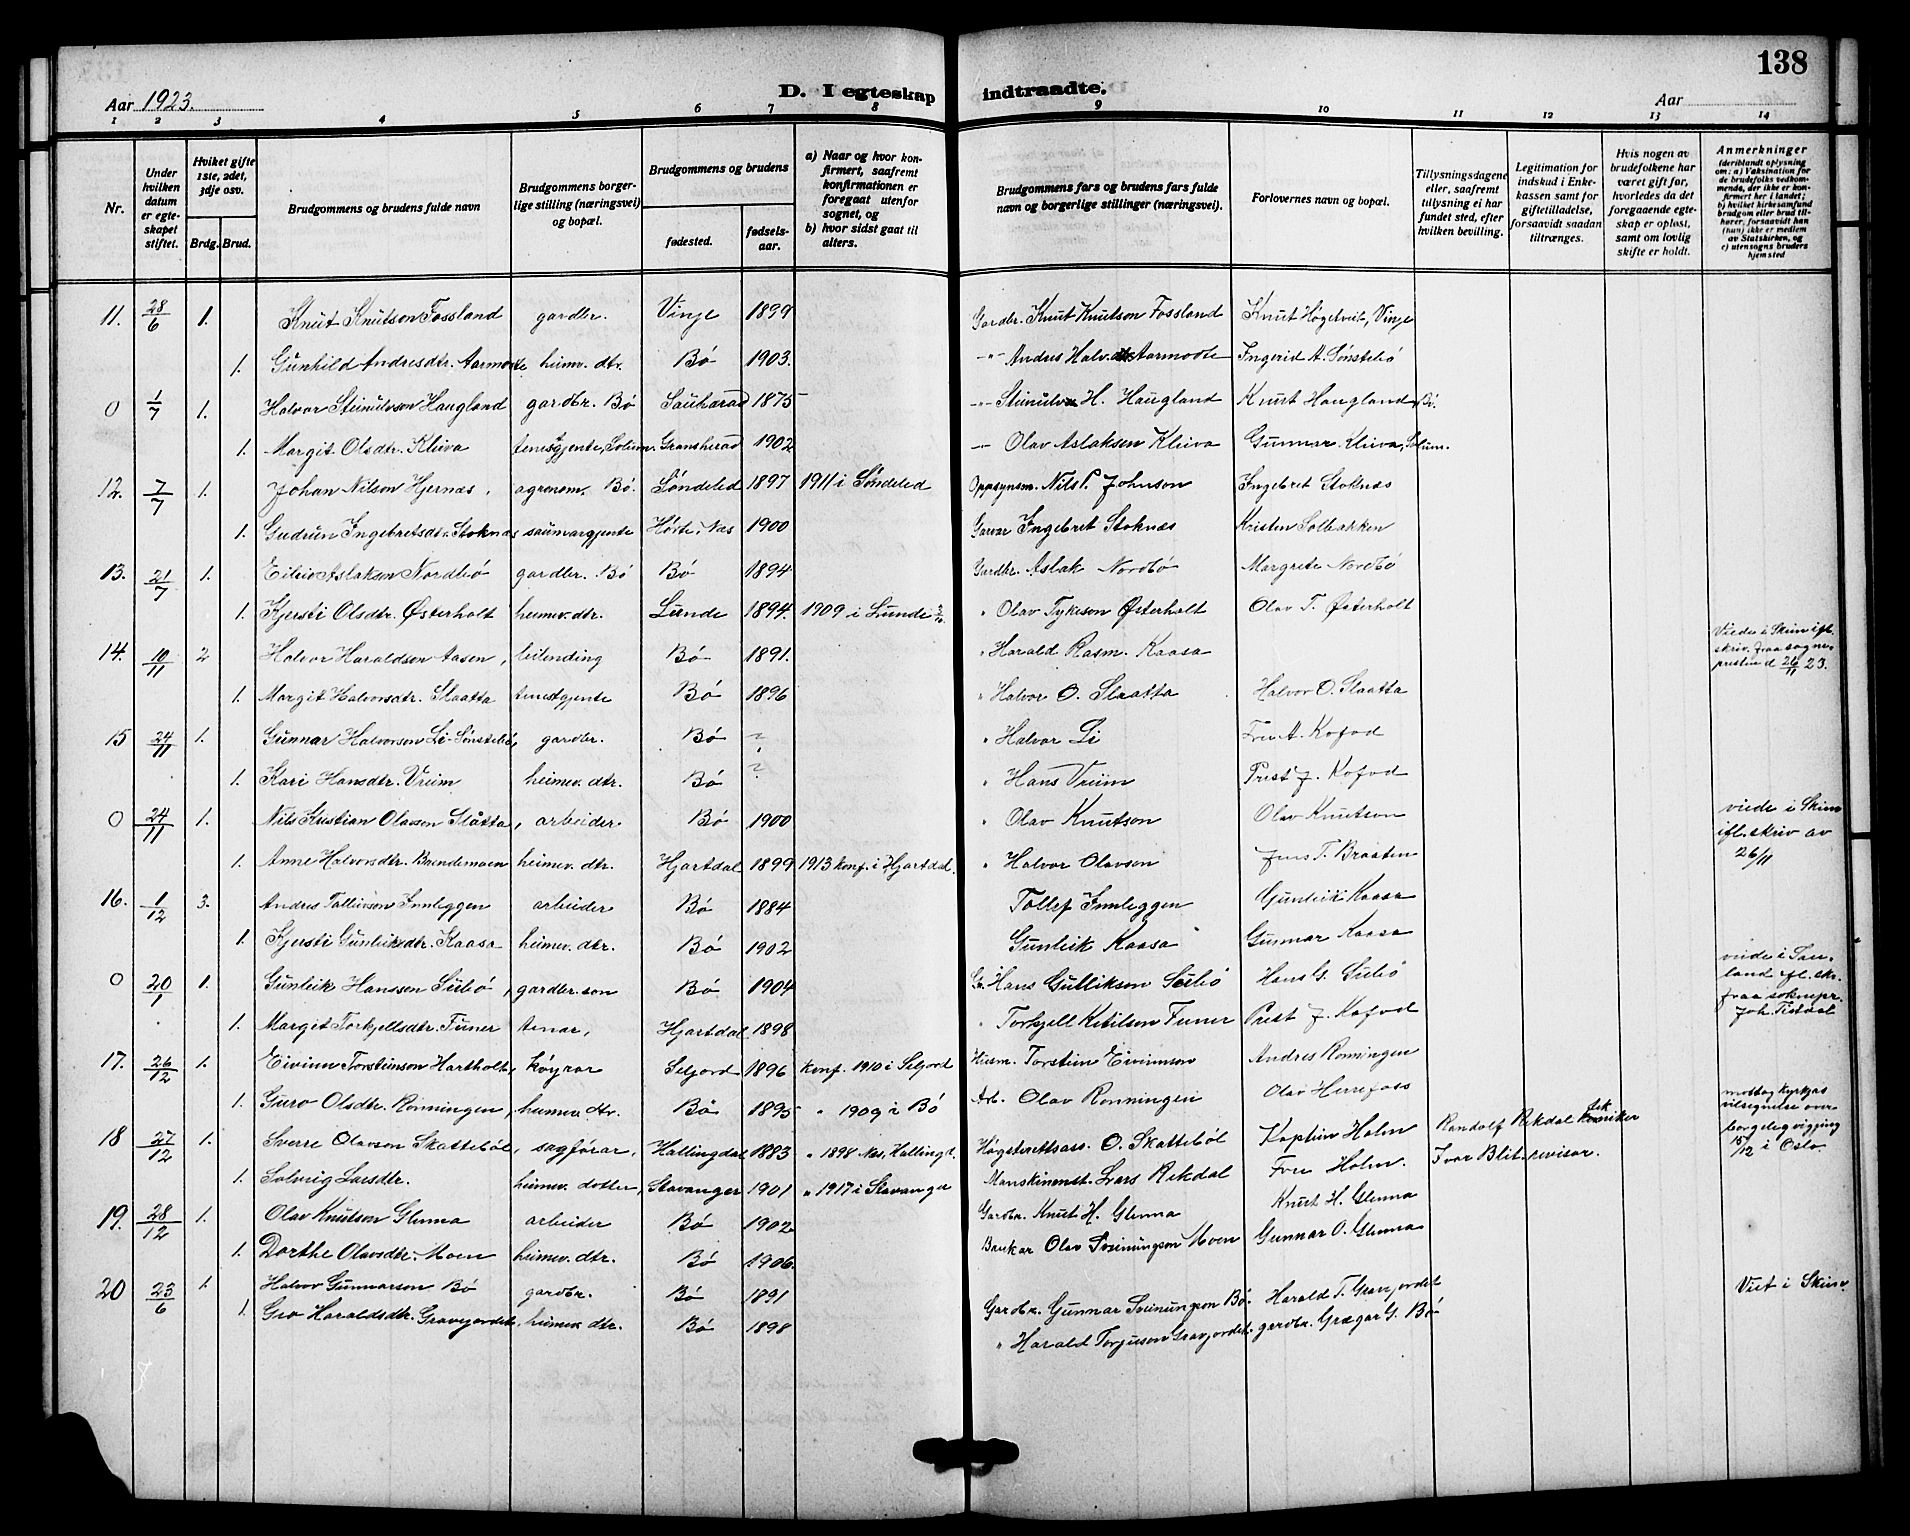 138
Aar 1923.
D. I egteskap indtraadte.
Aar
1 2 3 4 5 6 7 8 9 10 11 12 13 14
Nr.
Under hvilken datum er egteskapet stiftet.
Hviket gifte 1ste, 2det, 3dje osv.
Brdg. Brud.
Brudgommens og brudens fulde navn
Brudgommens borgerlige stilling (næringsvei) og bopæl.
Brudgommens og brudens
fødested.
fødselsaar.
a) Naar og hvor konfirmert, saafremt konfirmationen er foregaat utenfor sognet, og
b) hvor sidst gaat til alters.
Brudgommens fars og brudens fars fulde navn og borgerlige stillinger (næringsvei).
Forlovernes navn og bopæl.
Tillysningsdagene eller, saafremt tillysning ei har fundet sted, efter hvilken bevilling.
Legitimation for indskud i Enkekassen samt for giftetilladelse, forsaavidt saadan tiltrænges.
Hvis nogen av brudefolkene har været gift før, hvorledes da det foregaaende egteskap er opløst, samt om lovlig skifte er holdt.
Anmerkninger (deriblandt oplysning om: a) Vaksination for de brudefolks vedkommende, der ikke er konfirmert her i landet; b) hvilket kirkesamfund brudgom eller brud tilhører, forsaavidt han (hun) ikke er medlem av Statskirken, og c) utensogns bruders hjemsted
11. 28/6 1. Knut Knutson Fossland gardbr. Vinje 1899 Gardbr. Knut Knutson Fossland Knut Høgetveit, Vinje
1. Gunhild Andresdtr. Aarmoote heimev. dtr. Bø 1903. -"- Andres Halv. Aarmoote Ingerid A. Sønstebø
0 1/7 1. Halvor Steinulvson Haugland gardbr. Bø Sauherad 1875 -"- Steinulv H. Haugland Knut Haugland, Bø.
1. Margit Olsdtr. Kleiva tenestgjente, Solum. Gransherad 1902 -"- Olav Aslaksen Kleiva Gunnar Kleiva, Solum.
12. 7/7 1. Johan Nilson Hjernæs, agronom, Bø. Søndeled 1897 1911 i Søndeled Oppsynsm. Nils P. Johnson Ingebret Stoknæs
1. Gudrun Ingebretsdtr. Stoknæs saumargjente Holte, Næs 1900 Garvar Ingebret Stoknæs Kristen Solbakken
13. 21/7 1. Eiliv Aslakson Nordbø gardbr. Bø Bø 1894 Gardbr. Aslak Nordbø Margrete Nordbø
1. Kjersti Olsdtr. Østerholt heimev. dtr. Lunde 1894. 1909 i Lunde " Olav Tykeson Østerholt Olav T. Østerholt
14. 10/11 2 Halvor Haraldson Aasen, leilending Bø 1891. " Harald Rasm. Kaasa Viede i Skien ifl. skriv. fraa sognepresten d 26/11 23.
1. Margit Halvorsdtr. Slaatta tenestgjente Bø 1896 " Halvor O. Slaatta Halvor O. Slaatta
15 24/11 1. Gunnar Halvorson Li-Sønstebø, gardbr. Bø ? " Halvor Li Fru A. Kofod
1. Kari Hansdtr. Vreim heimev. dtr. Bø ? " Hans Vreim Prest J. Kofod
0 24/11 1. Nils Kristian Olavsen Slåtta, arbeider Bø 1900 " Olav Knutson Olav Knutson viede i Skien ifl. skriv av 26/11
1. Anne Halvorsdtr. Brendemoen heimev. dtr. Hjartdal 1899 1913 konf. i Hjartdal. " Halvor Olavson Jens T. Braaten
16. 1/12 3. Andres Tollevson Innleggen arbeider Bø 1884 Tollef Innleggen Gunleik Kaasa
1. Kjersti Gunleiksdtr. Kaasa heimev. dtr. Bø 1902 Gunleik Kaasa Gunnar Kaasa
0 20/1 1. Gunleik Hanssen Seibø, gardbr. son Bø 1904 G. Hans Gullikson Seibø Hans G. Seibø viede i Sauland ifl. skr. fraa soknepr. Joh. Tisdal
1. Margit Torkjellsdtr. Funer tenar, Hjartdal 1898 " Torkjell Ketilson Funer Prest J. Kofod
17. 26/12 1. Eivinn Torsteinson Hartholt, køyrar Seljord 1896 konf. 1910 i Seljord Husm. Torstein Eivinnson Andres Rønningen
1. Guro Olsdtr. Rønningen, heimev. dtr. Bø 1895 " 1909 i Bø Arb. Olav Rønningen Olav Herrefoss
18 27/12 1. Sverre Olavson Skattebøl, sagførar, Hallingdal 1883 " 1898 Nes, Hallingd. Høgsterettsass. O. Skattebøl Kaptein Holm Randolf Rekdal tekniker mottog kyrkjas velsignelse over borgeleg vigjing 15/12 i Oslo
1. Solveig Larsdtr. heimev. dotter, Stavanger 1901 " 1917 i Stavanger Maskinenst. Lars Rekdal Fru Holm. Ivar Blit. revisor.
19. 28/12 1. Olav Knutson Glenna arbeider Bø 1902 Gardbr. Knut H. Glenna Knut H. Glenna
1. Dorthe Olavsdtr. Moen heimev. dtr. Bø 1906. Bankar Olav Sveinungson Moen Gunnar O. Glenna
20 23/6 1. Halvor Gunnarson Bø gardbr. Bø 1891 Gardbr. Gunnar Sveinungson Bø. Harald T. Gravjordet Viet i Skien.
1. Gro Haraldsdtr. Gravjordet, heimev. dtr. Bø 1898 " Harald Torjuson Gravjordet. gardbr. Grægar G. Bø